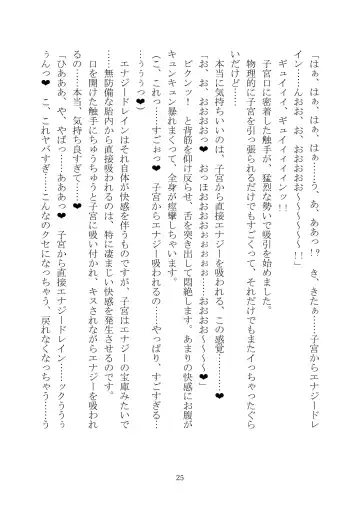 「はぁ、はぁ、はぁ、はぁ……う、あ、ああっ！？　き、きたぁ……子宮からエナジードレ
イン……んおお、お、おおおお〜〜〜〜〜！！」
　ギュイィィィ、ギュイィィィンッ！！
　子宮口に密着した触手が、猛烈な勢いで吸引を始めました。
　物理的に子宮を引っ張られるだけでもすごくって、それだけでもまたイっちゃったぐら
いだけど……。
　本当に気持ちいいのは、子宮から直接エナジーを吸われる、この感覚……❤
「お、おお、おおおおっ❤　おっほおおおおぉぉぉぉぉ……おおおお〜〜〜〜❤」
　ピクンッ！　と背筋を仰け反らせ、舌を突き出して悶絶します。あまりの快感にお腹が
キュンキュン暴れまくって、全身が痙攣しちゃいます。
（こ、これっ……すごぉっ❤　子宮からエナジー吸われるの……やっぱり、すごすぎる…
…ぅぅぅっ❤）
　エナジードレインはそれ自体が快感を伴うものですが、子宮はエナジーの宝庫みたいで
　無防備な胎内から直接吸われるのは、特に凄まじい快感を発生させるのです。
　口を開けた触手にちゅうちゅうと子宮に吸い付かれ、キスされながらエナジーを吸われ
るの……本当、気持ち良すぎて……❤
「ひあああ、や、やばっ……あああっ❤　子宮から直接エナジードレイン……ックううぅ
ぅんっ❤　こ、これヤバすぎ……こんなのクセになっちゃう、戻れなくなっちゃう……う
25